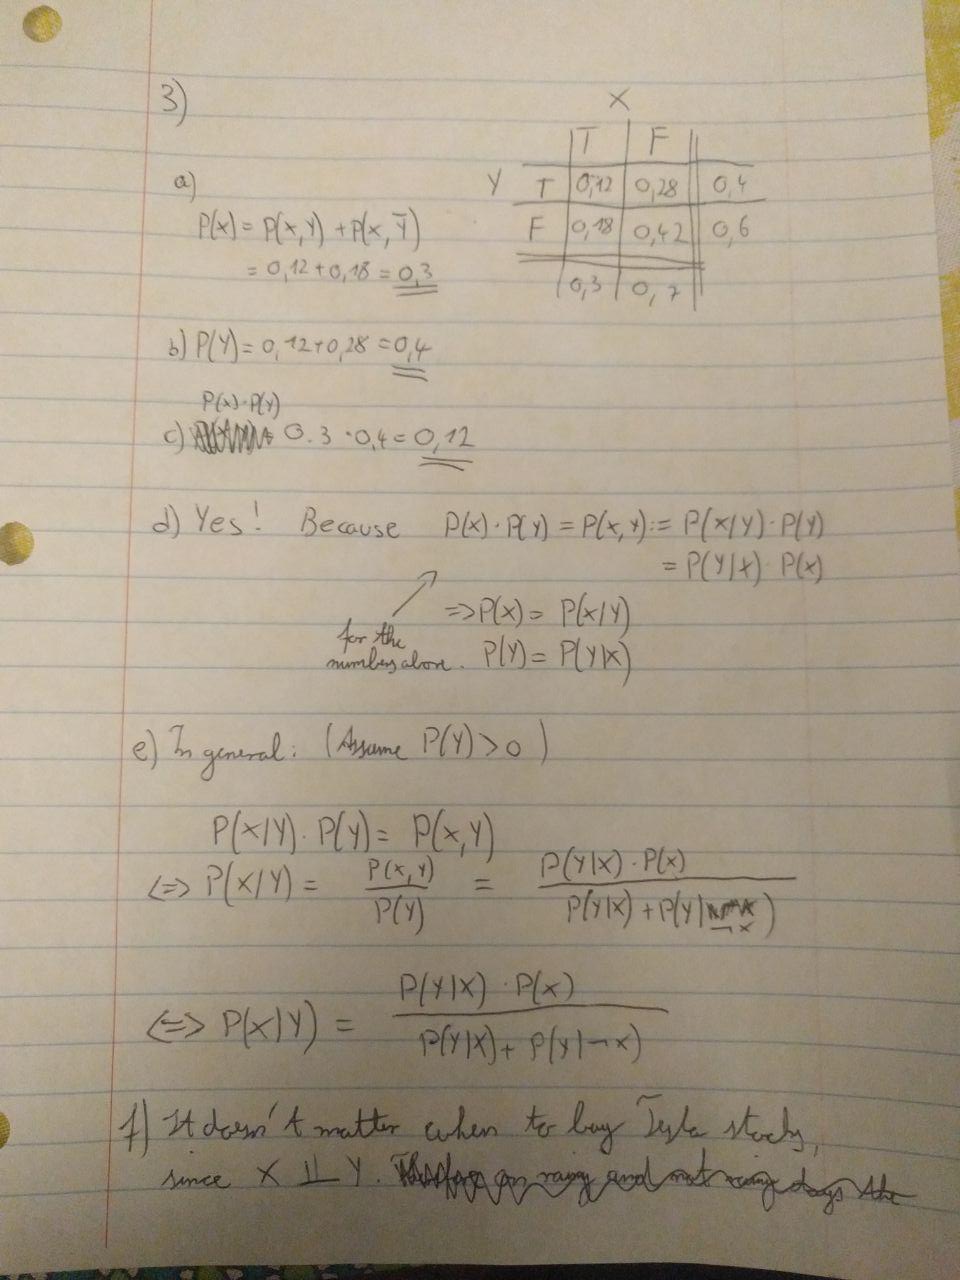 3)
X
T F
Y T 0,12 0,28 0,4
F 0,18 0,42 0,6
0,3 0,7
a)
P(X) = P(X,Y) + P(X,Ȳ)
= 0,12 + 0,18 = 0,3
b) P(Y) = 0,12 + 0,28 = 0,4
P(X)·P(Y)
c) 0.3 · 0,4 = 0,12
d) Yes! Because P(X)·P(Y) = P(X,Y) := P(X|Y)·P(Y)
= P(Y|X)·P(X)
=> P(X) = P(X|Y)
for the
numbers above. P(Y) = P(Y|X)
e) In general: (Assume P(Y) > 0)
P(X|Y)·P(Y) = P(X,Y)
<=> P(X|Y) = P(X,Y) / P(Y) = P(Y|X)·P(X) / P(Y|X) + P(Y|¬X)
<=> P(X|Y) = P(Y|X)·P(X) / P(Y|X) + P(Y|¬X)
f) It doesn't matter when to buy Tesla stocks,
since X ⫫ Y.